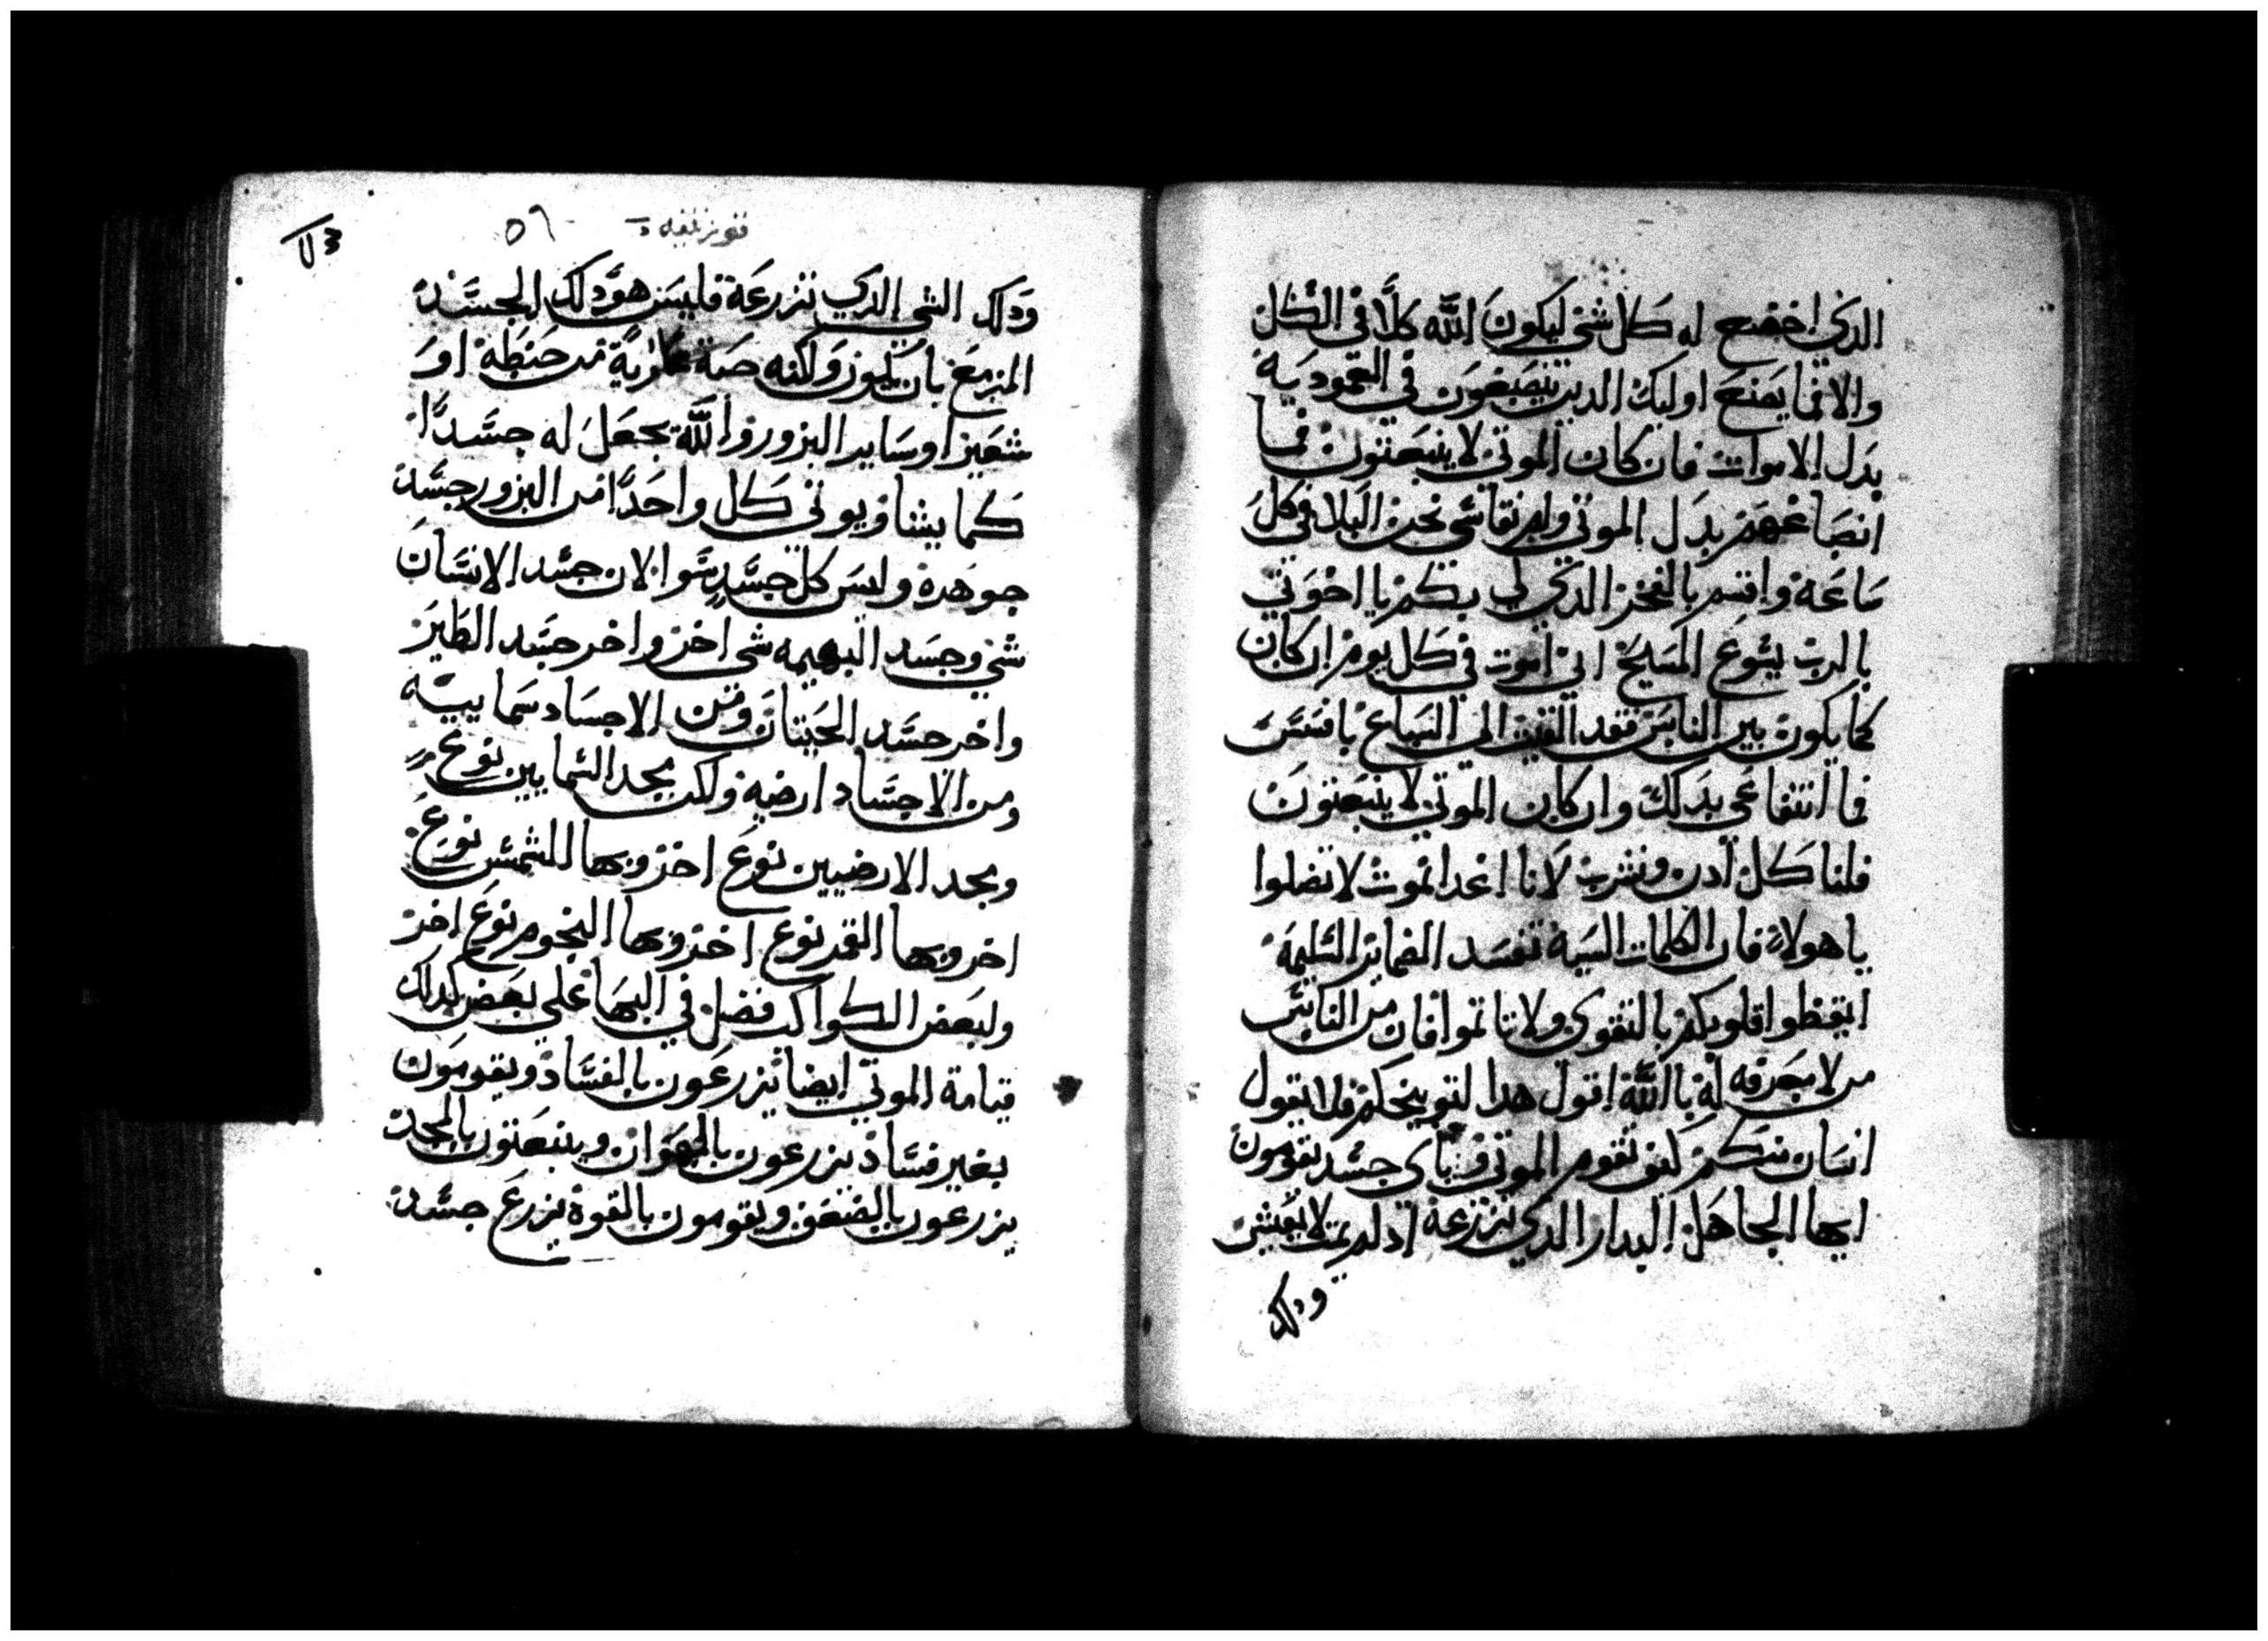 الدي اخضع له كل شي ليكون الله كلا في الكل
والا فما يصنع اوليك الدين ينصبغون في المعمودية
بدل الاموات فان كان الموتي لا ينبعتون فما
انصباغهم بدل الموتي ولم نقاسي نحن البلا في كل
ساعة واقسم بالفخر الدي لي بكم يا اخوتي
بالرب يسوع المسيح اني اموت في كل يوم ان كان
كما يكون بين الناس فقد القيت الي السباع بافسس
فما انتفاعي بدلك وان كان الموتي لا ينبعتون
فلناكل ادن ونشرب لانا غدا نموت لا تضلوا
يا هولاء فان الكلمات السية تفسد الضماير السليمة
ايقظوا قلوبكم بالتقوي ولا تاتموا فان من الناس
من لا معرفه له بالله اقول هدا لتوبيخكم فلا يقول
انسان منكم كيف تقوم الموتي وباي جسد يقومون
ايها الجاهل البدار الدي تزرعة اد لم يمت لا يعيش
ودلك
٥٩
ودلك الشي الدي تزرعة فليس هو دلك الجسد
المزمع بان يكون ولكنه حبة عارية من حنطة او
شعير او ساير البزور والله يجعل له جسدا
كما يشا ويوتي كل واحدا من البزور جسد
جوهرة وليس كل جسد سوا لان جسد الانسان
شي وجسد البهيمه شي اخر واخر جسد الطير
واخر جسد الحيتان ومن الاجساد سماييه
ومن الاجساد ارضيه ولكن مجد السماييين نوع
ومجد الارضيين نوع اخر وبها الشمس نوع
اخر وبها القمر نوع اخر وبها النجوم نوع اخر
ولبعض الكواكب فضل في البها علي بعض كدلك
قيامة الموتي ايضا يزرعون بالفساد ويقومون
بغير فساد يزرعون بالهوان وينبعتون بالمجد
يزرعون بالضعف ويقومون بالقوة يزرع جسد